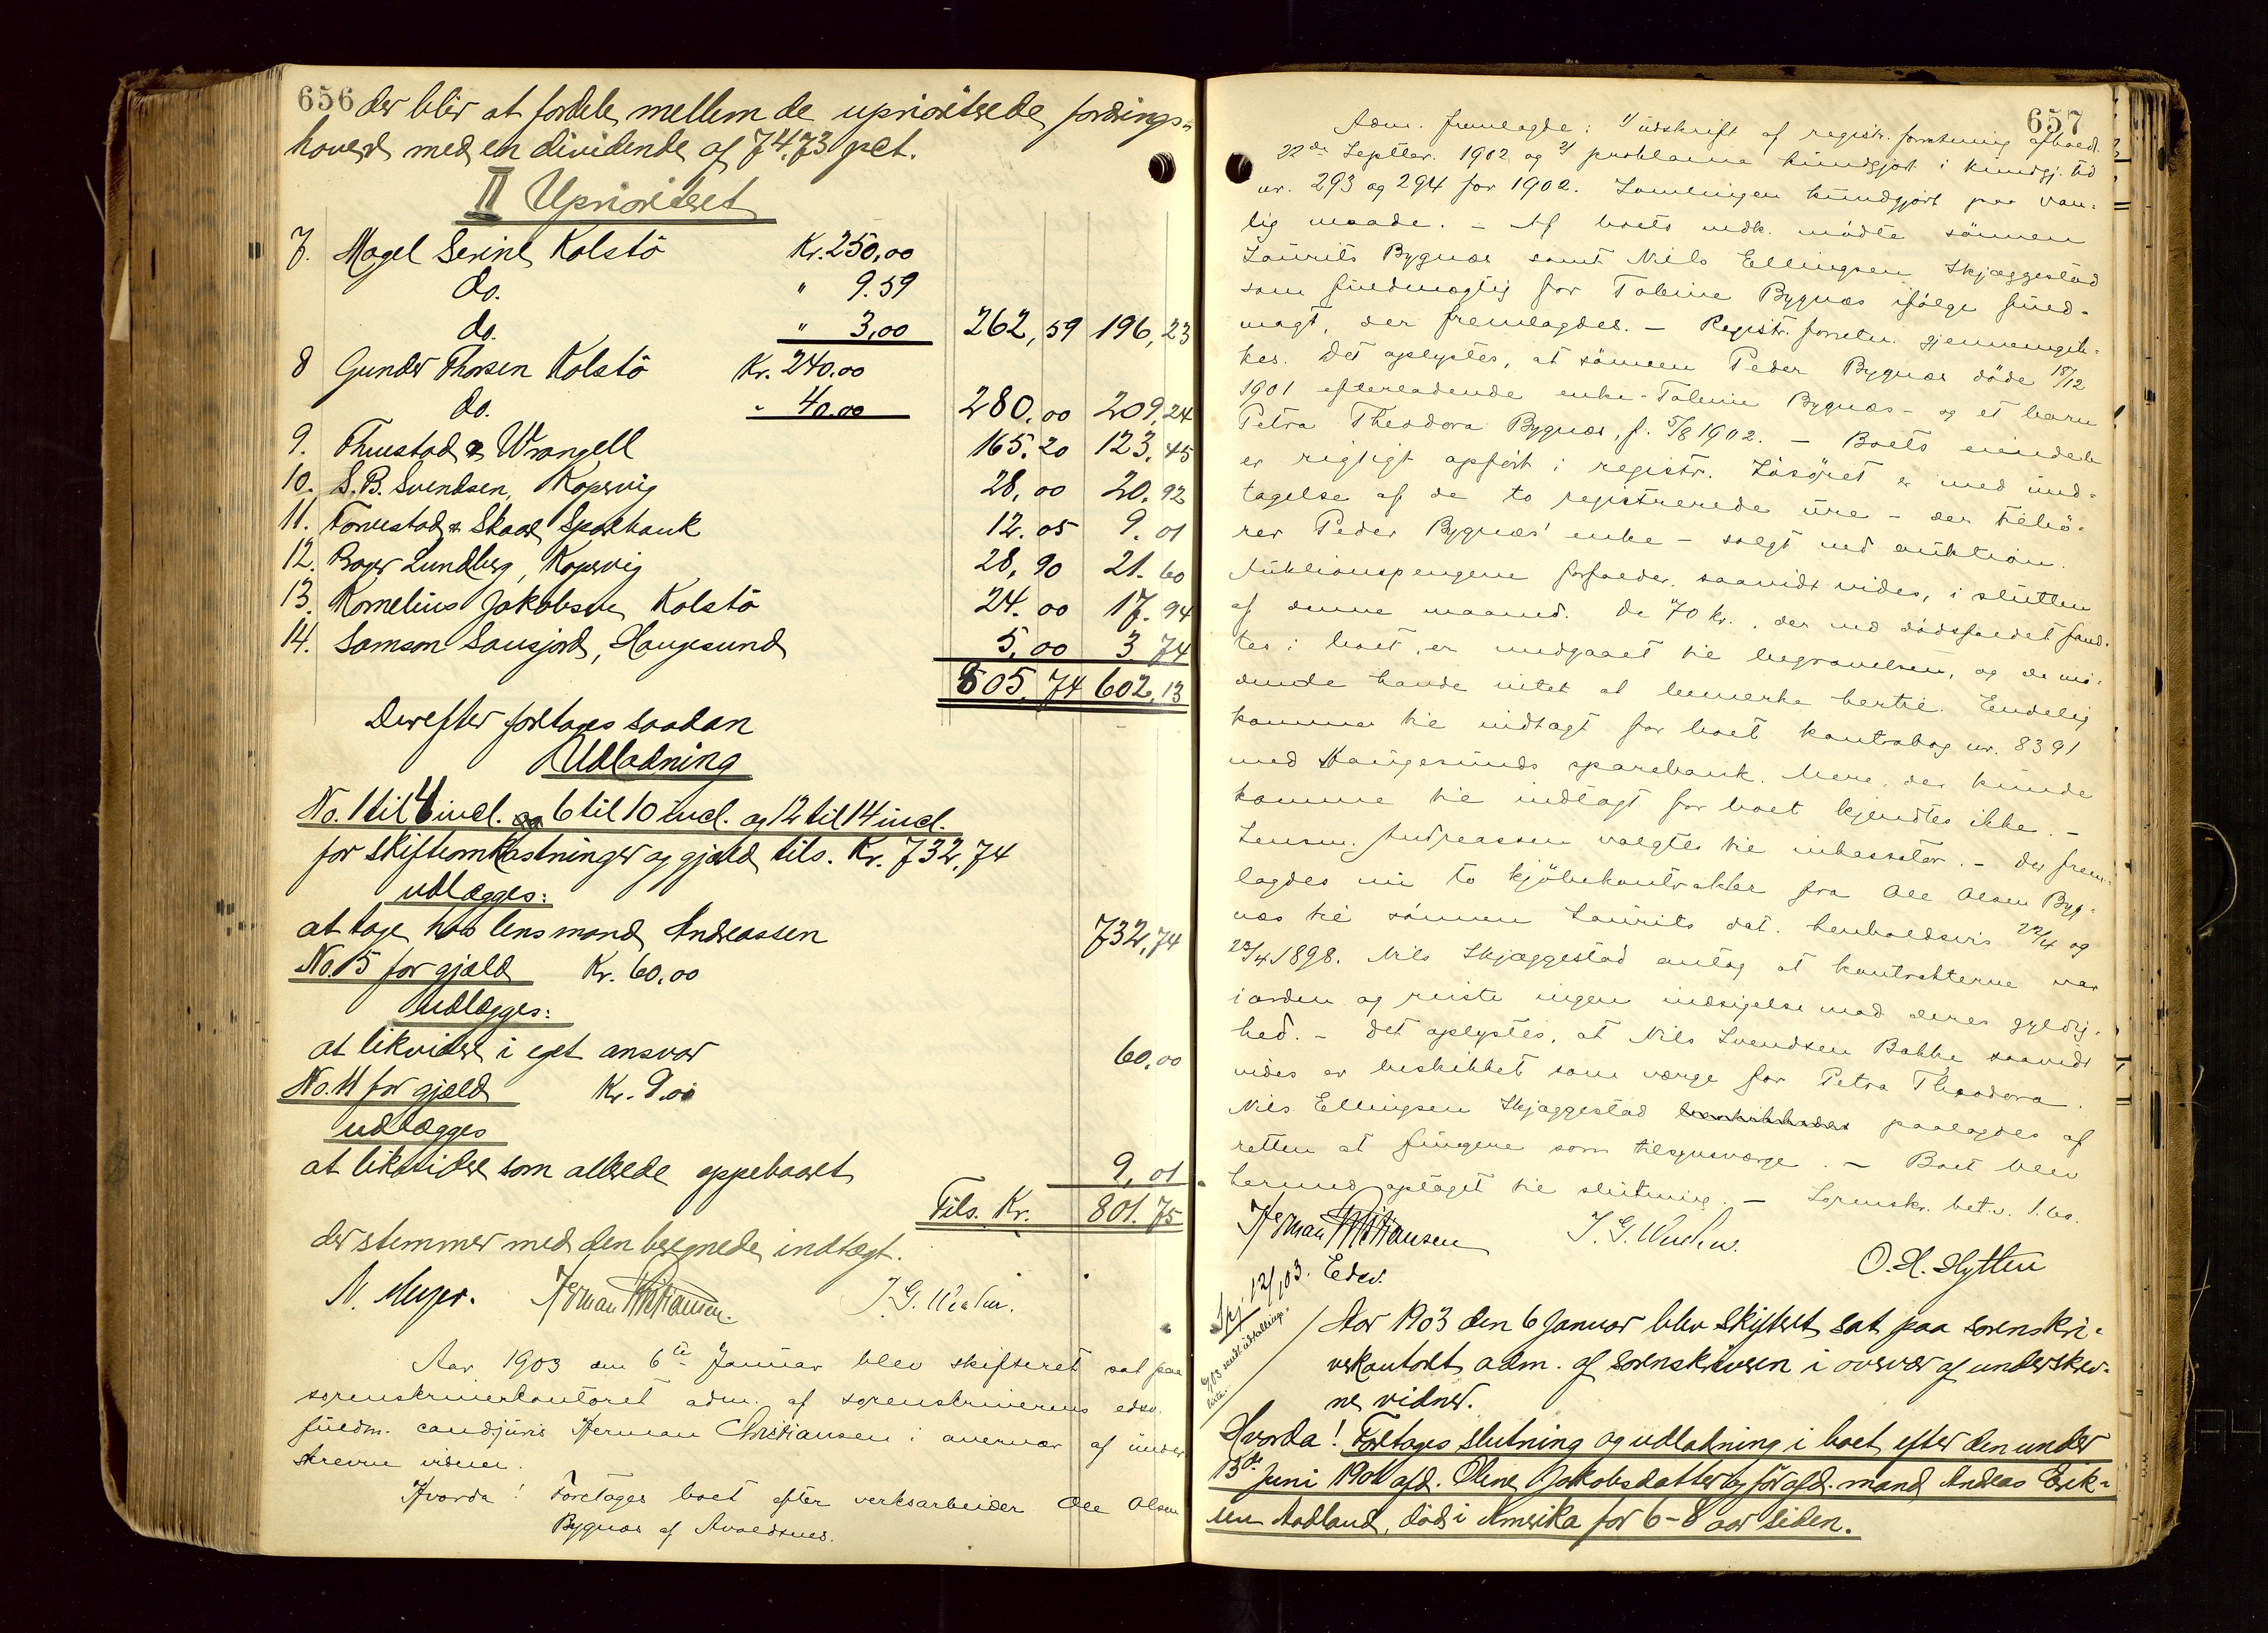 656 der bliver at fordele mellem de uprioriterede fordrings-
havere med en dividende af 74.73 pct.
II Uprioriteret
7. Magel Serine Kolstö Kr. 250,00
do. " 9.59
do. " 3,00 262,59 196,23
8 Gunder Thorsen Kolstö Kr. 240.00
do. " 40.00 280.00 209,24
9. Thuestad & Wrangell 165.20 123.45
10. S. B. Svendsen, Kopervig 28,00 20.92
11. Torvestad & Skaare Sparebank 12.05 9.01
12. Lundberg, Kopervig 28,90 21.60
13. Kornelius Jakobsen Kolstö 24.00 17.94
14. Samson Sausjord, Haugesund 5,00 3 74
805.74 602.13
Derefter foretages saadan
Udlodning
No. 1 til 4 incl. og 6 til 10 incl. og 12 til 14 incl.
for skifteomkostninger og gjæld tils. Kr. 732,74
udlægges:
at tage hos lensmand Andreassen 732,74
No. 15 for gjæld Kr. 60.00
udlægges:
at likvidere i eget ansvar 60,00
No. 11 for gjæld Kr. 9.01
udlægges
at likvidere som allerede oppebaaret 9,01
Tils. Kr. 801.75
der stemmer med den beregnede indtægt.
N. Meyer. Herman Christiansen. J. G.
Aar 1903 den 6te Januar blev skifteret sat paa
sorenskriverkontoret adm. af sorenskriverens edsv.
fuldm. cand juris Herman Christiansen i overvær af under
skrevne vidner.
Hvorda! Foretages boet efter verksarbeider Ole Olsen
Bygnæs af Avaldsnes.
657
Adm. fremlagde: 1/ udskrift af registr. forretning afholdt
22de Septbr. 1902 og 2/ proklama kundgjort i kundgj. tid
nr. 293 og 294 for 1902. Samlingen kundgjort paa van-
lig maade. – Af boets vedk. mødte sønnen
Laurits Bygnæs samt Nils Ellingsen Skjæggestad
som fuldmægtig for Taline Bygnæs ifølge fuld-
magt, der fremlagdes. – Registr. forretn. gjennemgik-
kes. Det oplystes, at sönnen Peder Bygnæs döde 18/12
1901 efterladende enke – Taline Bygnæs – og et barn
Petra Theodora Bygnæs, f. 5/8 1902. – Boets eiendele
er rigtigt opfört i registr. Lösöret er med und-
tagelse af de to registrerede ure – der tilhö-
rer Peder Bygnæs' enke – solgt ved auktion.
Auktionspengene forfalder, saavidt vides, i slutten
af denne maaned. De 70 kr., der ved dödsfaldet fand-
tes i boet, er medgaaet til begravelsen, og de mö-
dende havde intet at bemerke hertil. Endelig
kommer til indtægt for boet kontrabog nr. 8391
med Haugesunds sparebank. Mere, der kunde
komme til indtægt for boet kjendtes ikke. –
Lensm. Andreassen valgtes til inkassator. – Der frem-
lagdes nu to kjöbekontrakter fra Ole Olsen Byg-
næs til sönnen Laurits dat. henholdsvis 22/4 og
23/4 1898. Nils Skjæggestad antog at kontrakterne var
i orden og reiste ingen indsigelse mod deres gyldig-
hed. – Det oplystes, at Nils Svendsen Bakke saavidt
vides er beskikket som værge for Petra Theodora.
Nils Ellingsen Skjæggestad paalagdes af
retten at fungere som tilsynsværge. – Boet blev
hermed optaget til slutning. – Sorenskr. bet. v. s. bo.
Herman Christiansen J. G.
O. H. Hytten
Edsv.
Aar 1903 den 6 Januar blev skifteret sat paa sorenskri-
verkontoret adm. af sorenskriveren i overvær af underskrev-
ne vidner.
Hvorda! Foretages slutning og udlodning i boet efter den under
13de Juni 1901 afd. Oline Jakobsdatter og för afd. mand Andreas Erik-
sen Aadland, död i Amerika for 6–8 aar siden.